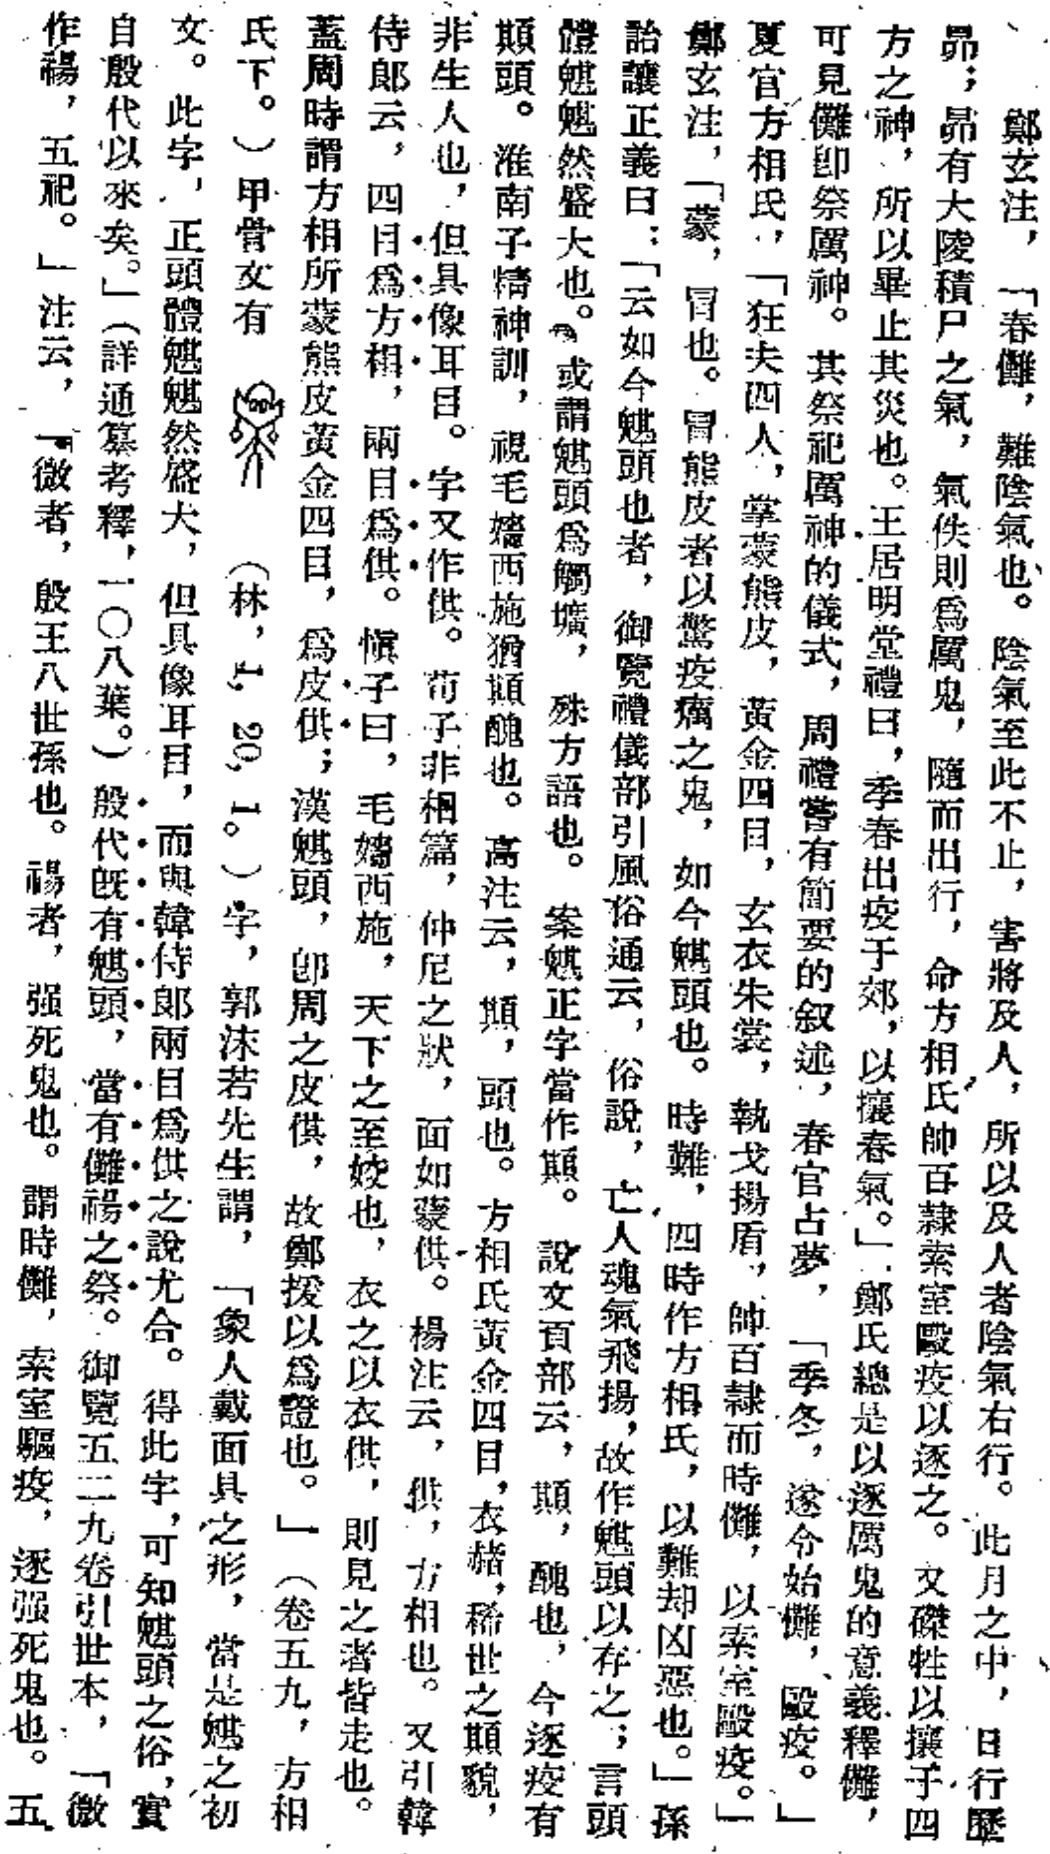 鄭玄注，「春儺，難陰氣也。陰氣至此不止，害將及人，所以及人者陰氣右行。此月之中，日行歷
昴；昴有大陵積尸之氣，氣佚則爲厲鬼，隨而出行，命方相氏帥百隸索室毆疫以逐之。又磔牲以攘于四
方之神，所以畢止其災也。王居明堂禮曰，季春出疫于郊，以攘春氣。」鄭氏總是以逐厲鬼的意義釋儺，
可見儺卽祭厲神。其祭祀厲神的儀式，周禮嘗有簡要的叙述，春官占夢，「季冬，遂令始儺，毆疫。」
夏官方相氏，「狂夫四人，掌蒙熊皮，黃金四目，玄衣朱裳，執戈揚盾，帥百隸而時儺，以索室毆疫。」
鄭玄注，「蒙，冒也。冒熊皮者以驚疫癘之鬼，如今魌頭也。時難，四時作方相氏，以難却凶惡也。」孫
詒讓正義曰：「云如今魌頭也者，御覽禮儀部引風俗通云，俗說，亡人魂氣飛揚，故作魌頭以存之；言頭
體魌魌然盛大也。或謂魌頭爲觸壙，殊方語也。案魌正字當作䫏。說文頁部云，䫏，醜也，今逐疫有
䫏頭。淮南子精神訓，視毛嬙西施猶䫏醜也。高注云，䫏，頭也。方相氏黃金四目，衣赭，稀世之䫏貌，
非生人也，但具像耳目。字又作倛。荀子非相篇，仲尼之狀，面如蒙倛。楊注云，倛，方相也。又引韓
侍郎云，四目爲方相，兩目爲倛。愼子曰，毛嬙西施，天下之至姣也，衣之以衣倛，則見之者皆走也。
蓋周時謂方相所蒙熊皮黃金四目，爲皮倛；漢魌頭，卽周之皮倛，故鄭援以爲證也。」（卷五九，方相
氏下。）甲骨文有（林，1，20，1。）字，郭沫若先生謂，「象人戴面具之形，當是魌之初
文。此字，正頭體魌魌然盛大，但具像耳目，而與韓侍郎兩目爲倛之說尤合。得此字，可知魌頭之俗，實
自殷代以來矣。」（詳通纂考釋，一〇八葉。）殷代旣有魌頭，當有儺禓之祭。御覽五二九卷引世本，「微
作禓，五祀。」注云，「微者，殷王八世孫也。禓者，强死鬼也。謂時儺，索室驅疫，逐强死鬼也。五